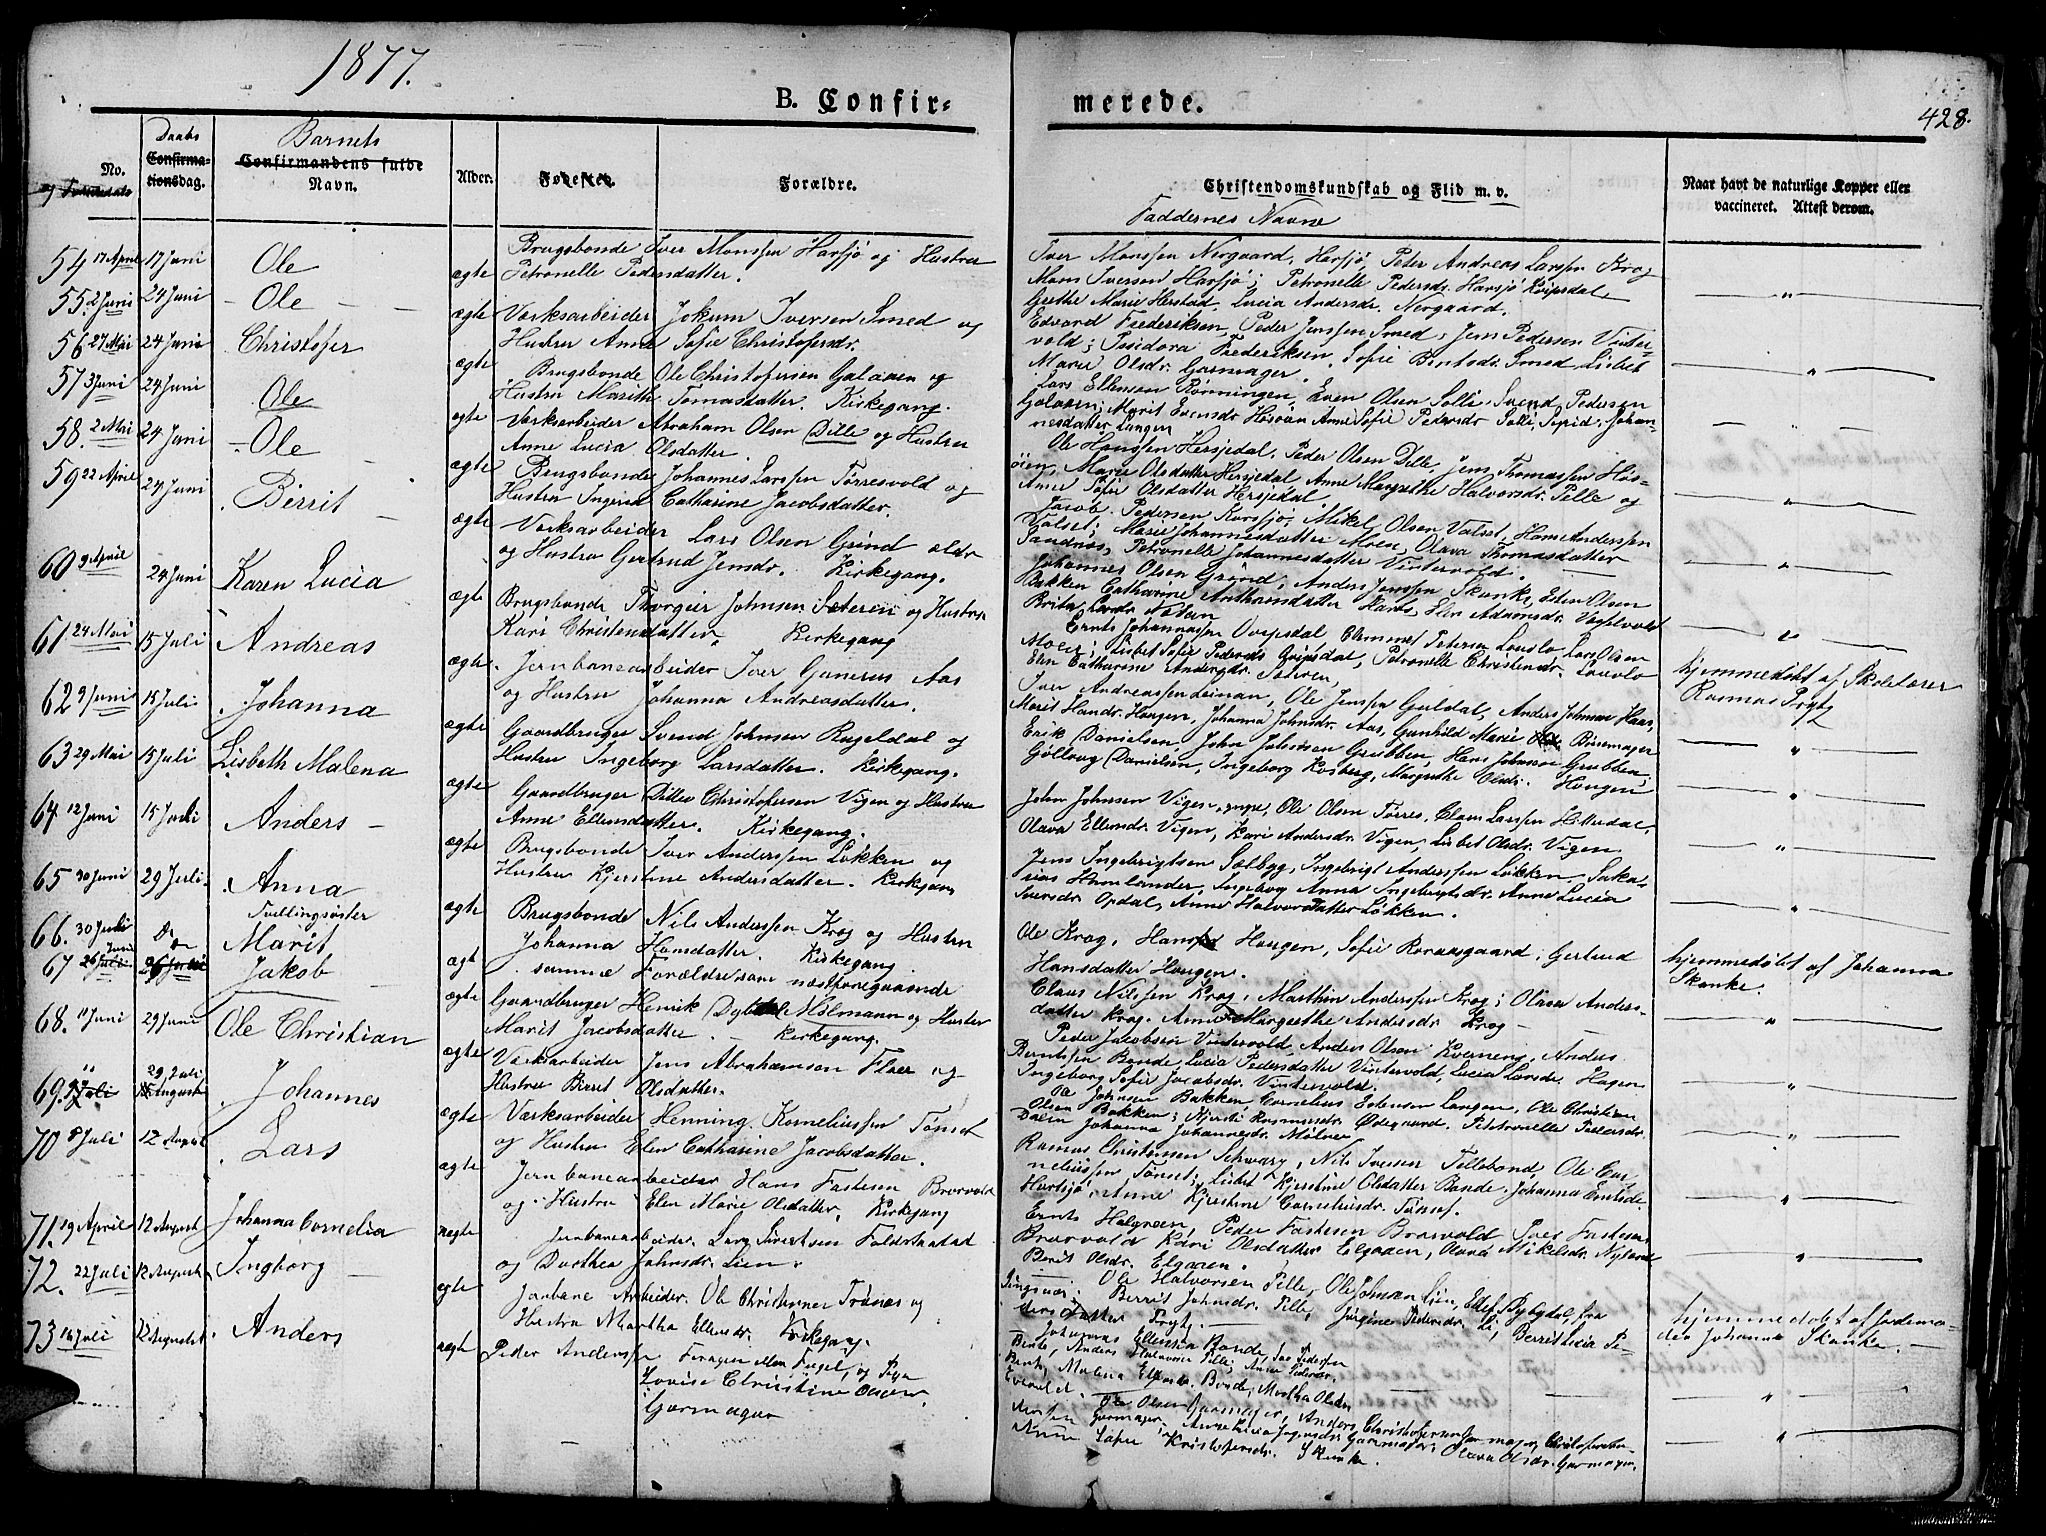 1877.
B. Confir-
merede.
428.
No.
og Fødselsdato
Daabs
Confirma-
tionsdag.
Barnets
Confirmandens fulde
Navn.
Alder.
Forældre.
Christendomskundskab og Flid m. v.
Faddernes Navne
Naar havt de naturlige Kopper eller
vaccineret. Attest derom.
54 17 April 17 Juni Ole ægte Brugsbonde Iver Monssen Harsjø og Hustru
Petronelle Pedersdatter.
Iver Monssen Norgaard, Harsjø, Peter Andreas Larssen Krog
Mons Iversen Harsjø; Petronelle Pedersdr. Harsjø
Grethe Marie Herstad, Lucia Andersdr. Norgaard.
55. 2 Juni 24 Juni Ole ægte Værksarbeider Jokum Iversen Smed og
Hustru Anne Sofie Christofersdr.
Edvard Frederiksen, Peder Jenssen Smed, Jens Pedersen Vinter-
vold; Issidora Frederiksen, Sofie Berntsdr. Smed, Lisbet
Marie Olsdr. Garmager.
56 27 Mai 24 Juni Christofer ægte Brugsbonde Ole Christofersen Galaaen og
Hustru Marith Tomasdatter. Kirkegang.
Lars Ellensen Rønningen, Even Olsen Solli, Svend Pedersen
Galaaen; Marit Evensdr. Anne Sofie Pedersdr. Solli, Sigrid Johan-
nesdatter Langen
57 3 Juni 24 Juni Ole ægte Værksarbeider Abraham Olsen Dille og Hustru
Anne Lucia Olsdatter.
Ole Hanssen Hersjedal, Peder Olsen Dille, Jens Thomassen Høs-
øien, Marie Olsdatter Hersjedal, Anne Margrethe Halvorsdr. Pille og
Anne Sofie Olsdatter Hersjedal.
58. 2 Mai 24 Juni Ole ægte Brugsbonde Johannes Larssen Torresvold og
Hustru Ingrid Catharine Jacobsdatter.
Jacob Pedersen Korssjø, Mikel Olsen Valset, Hans Anderssen
Valset; Marie Johannesdatter Moen, Olava Thomasdatter
Sandnæs, Petronelle Johannesdatter Vintervold.
59 22 April 24 Juni Berrit ægte Værksarbeider Lars Olsen Grind
og Hustru Gertrud Jensdr. Kirkegang.
Johannes Olsen Grind, Anders Jenssen Skanke, Esten Olsen
Bakken, Catharine
Brita
60 9 April 24 Juni Karen Lucia ægte Brugsbonde Thorgeir Johnsen Sæteren og Hustru
Kari Christensdatter. Kirkegang
Ernts Johannessen Qvipsdal, Clemmet Petersen Lovslo, Lars Olsen
Moen; Lisbet Sofie Pedersdr. Qvipsdal, Petronelle Christensdr. Lovslo
Elen Catharine Andersdr. Sæteren,
61 24 Mai 15 Juli Andreas ægte Jernbanearbeider Iver Gunerus Aas
og Hustru Johanna Andreasdatter.
Iver Andreassen Leinan, Ole Jenssen Guldal, Anders Johnsen Haas,
Marit Hansdr. Hougen, Johanna Johnsdr. Aas, Gunhild Marie Bissemager
hjemmedøbt af Skolelærer
Rasmus Prytz
62 9 Juni 15 Juli Johanna ægte Gaardbruger Svend Johnsen Rugeldal og
Hustru Ingeborg Larsdatter. Kirkegang.
Erik Danielsen, John Johnsen Grubben, Hans Johnsen Grubben,
Gollaug Danielsen, Ingeborg Kosberg, Margrethe Olsdr. Hougen
63 29 Mai 15 Juli Lisbeth Malena ægte Gaardbruger Ditlev Christofersen Vigen og Hustru
Anne Ellensdatter. Kirkegang.
John Johnsen Vigen, yngre, Ole Olsen Torres, Claus Larssen Hitterdal,
Olava Ellensdr. Vigen, Kari Andersdr. Vigen, Lisbet Olsdr. Vigen
64 12 Juni 15 Juli Anders ægte Brugsbonde Iver Anderssen Løkken og
Hustru Kjerstine Andersdatter. Kirkegang
Jens Ingebrigtsen Sælbyg, Ingebrigt Anderssen Løkken, Saka-
rias Hemlander, Ingeborg Anna Ingebrigtsdr. Anne Lucia
Iversdr. Opdal, Anne Halvorsdatter Løkken.
65 30 Juni 29 Juli. Anna ægte Brugsbonde Nils Anderssen Krog og Hustru
Johanna Hansdatter. Kirkegang
Ole Krog, Hans Hougen, Sofie Roraasgaard, Gertrud
Hansdatter Hougen.
hjemmedøbt af Johanna
Skanke.
66. 30 Juli Do Tvellingsøster Marit ægt samme Forældre som næstforegaaende
Claus Nilssen Krog, Marthin Anderssen Krog; Olava Anders-
datter Krog. Anne Margrethe Andersdr. Krog
67 26 Juni Jakob ægte Gaardbruger Henrik Dybdal Mølmann og Hustru
Marit Jacobsdatter. Kirkegang.
Peder Jacobsen Vintervold, Anders Olsen Kverneng, Anders
Berntsen Bonde, Lucia Pedersdatter Vintervold, Lucia Larsdr. Hagen
Ingeborg Sofie Jacobsdr. Vintervold.
68. 11 Juni 29 Juni Ole Christian ægte Værksarbeider Jens Abrahamsen Floer og
Hustru Birrit Olsdatter.
Ole Johnsen Bakken, Cornelius Estensen Langen, Ole Christian
Olsen Bakken; Kjersti Rasmusdr. Ødegaard. Petronelle Pedersdr.
Dalen Johanna Johannesdr. Mølner
69. 29 Juli August Johannes ægte Værksarbeider Henning Korneliussen Tønset
og Hustru Elen Catharine Jacobsdatter.
Rasmus Christensen Schwarz, Nils Iversen Tellebond, Ole Cor-
neliussen Tønset, Lisbet Kjerstine Olsdatter Bonde, Johanna
Harsjø, Anne Kjerstine Corneliusdr. Tønset.
70 8 Juli 12 August Lars ægte Jernbanearbeider Hans Fastesen Brorvold
og Hustru Elen Marie Olsdatter, Kirkegang
Ernts Halgreen, Peder Fastesen Brorvold, Iver Fastesen
Brorvold Kari Olsdatter Elgaaen, Olava Mikelsdr. Nyland
Berit Olsdr. Elgaaen.
71. 19 April 12 August Johanna Cornelia uægte Jernbanearbeider Lars Sivertsen
og Dorthea Johnsdr. Lien.
Ole Halvorsen Pille, Ole Johnsen Lien, Ellef Bybgdal, fra
Berrit Johnsdr. Pille, Jørgine Pedersdr. Li, Berrit Lucia Pe-
dersdatter Prytz.
hjemmedøbt af Jordemo-
der Johanna Skanke.
72. 22 Juli 12 August Ingborg ægte Jernbane Arbeider Ole Christensen Trønæs og
Hustru Martha Ellensdr. Kirkegang.
Johannes Ellensen Bonde, Jao Pedersen
Bents, Anders Halvorsen Pille, Anne Pedersdr.
Bents, Malena Bonde, Martha Olsdr.
73 14 Juli 12 Augustst. Anders uægte Peder Anderssen Feragen og Pige
Lovise Christine Olsen,
Garmager
Ole Olsen Garmager, Anders Christofersen Garmager, Christofer
Garmager,
Anne Sofie Kristofersdr. Skanke. Olava Olsdr. Garmager.